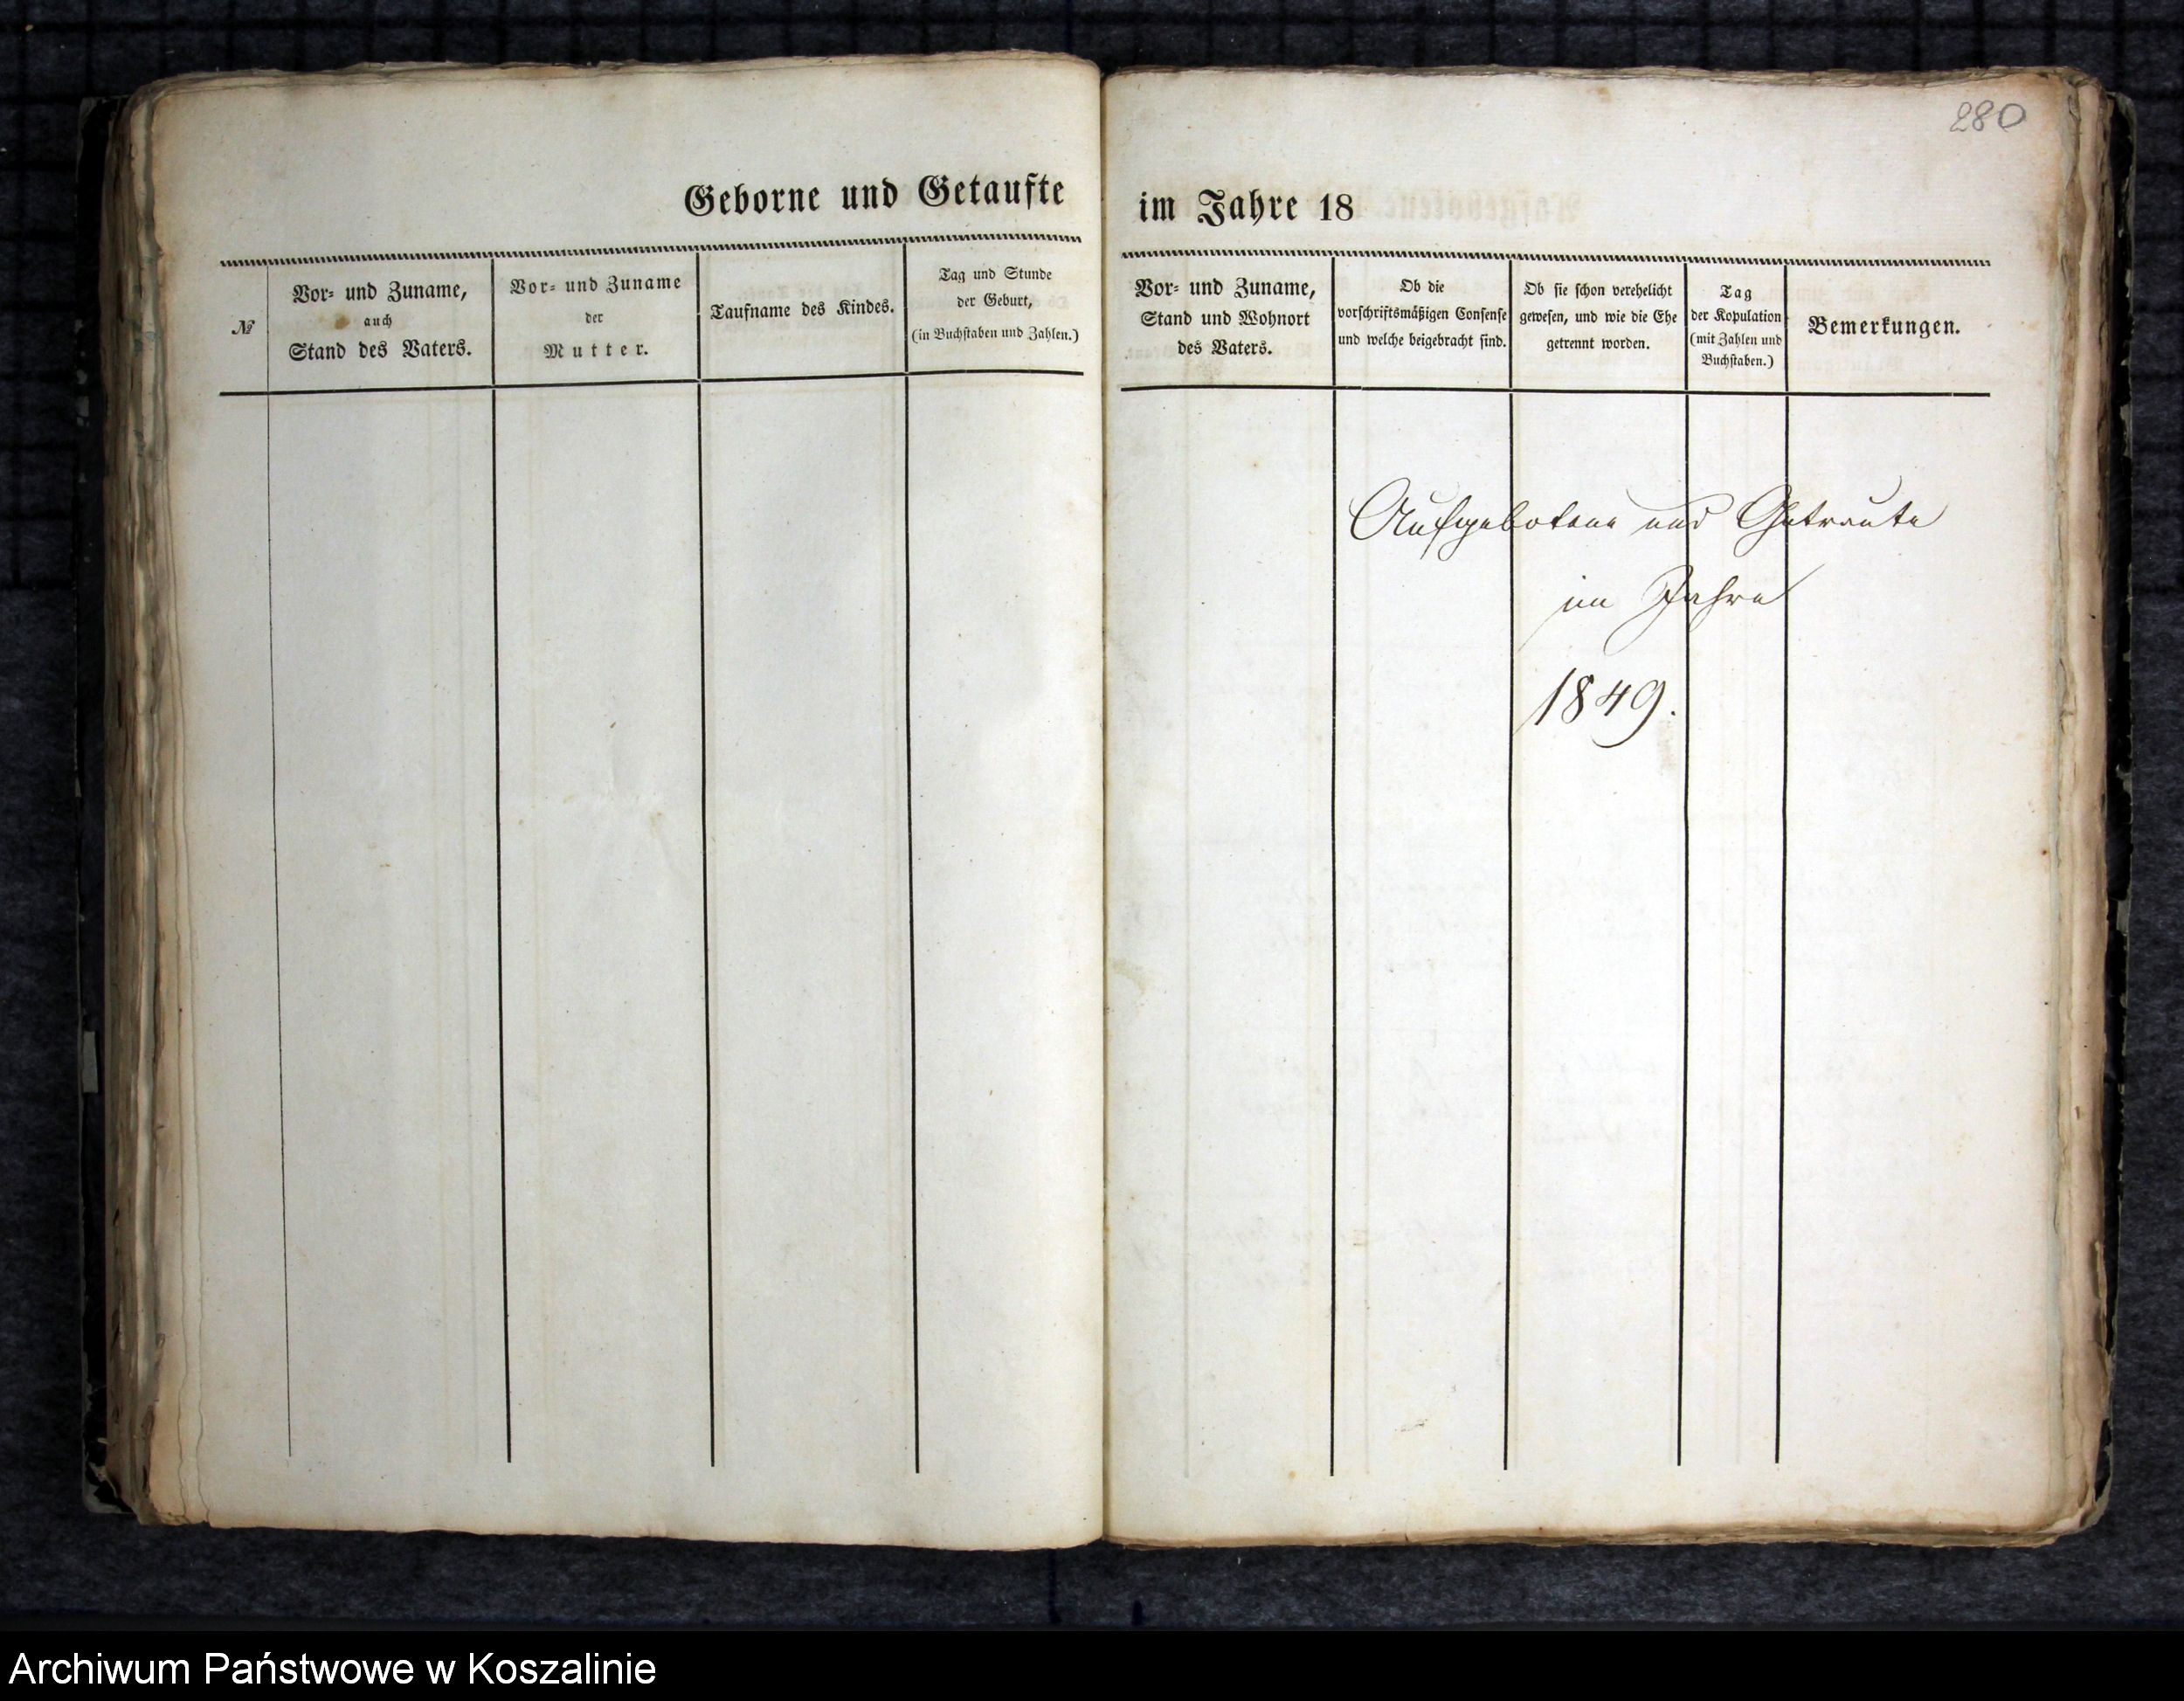 280
Geborne und Getaufte
№
Vor- und Zuname,
auch
Stand des Vaters.
Vor- und Zuname
der
Mutter.
Taufname des Kindes.
Tag und Stunde
der Geburt,
(in Buchstaben und Zahlen.)
im Jahre 18
Vor- und Zuname,
Stand und Wohnort
des Vaters.
Ob die
vorschriftsmäßigen Consense
und welche beigebracht sind.
Ob sie schon verehelicht
gewesen, und wie die Ehe
getrennt worden.
Tag
der Kopulation
(mit Zahlen und
Buchstaben.)
Bemerkungen.
Aufgebotene und Getraute
im Jahre
1849.
Archiwum Państwowe w Koszalinie